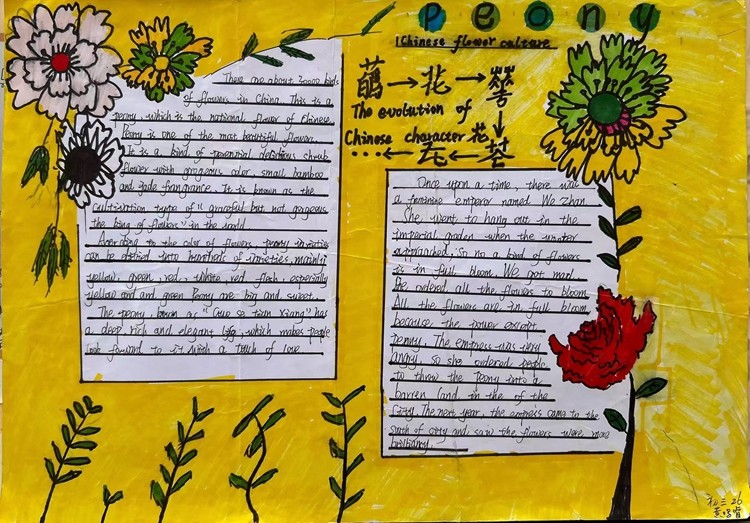 peony
Chinese flower culture
花
The evolution of
Chinese character 花
There are about 30000 kinds
of flowers in China. This is a
peony, which is the national flower of Chinese.
Peony is one of the most beautiful flower.
It is a kind of perennial deciduous shrub
flower with gorgeous color, small bamboo
and wide fragrance. It is known as the
cultivation type of "graceful but not gorgeous
the king of flowers" in the world
According to the color of flowers, peony varieties
can be divided into hundreds of varieties, mainly
yellow, green, red, white, red flesh, especially
yellow and green Peony are big and sweet.
The peony, known as "Guo se tian Xiang" has
a deep, rich and elegant, which makes people
look forward to it with a touch of love.
Once upon a time, there was
a feminine emperor named We Zhan
She went to hang out in the
imperial garden when the winter
approached. So no a kind of flowers
is in full bloom. We got mad.
He ordered all the flowers to bloom.
All the flowers are in full bloom
because the power except
peony. The empress was very
angry. So she ordered people
to throw the peony into a
barren land in the of the
City. The next year, the empress came to the
south of city and saw the flowers were more
brilliancy.
初三26